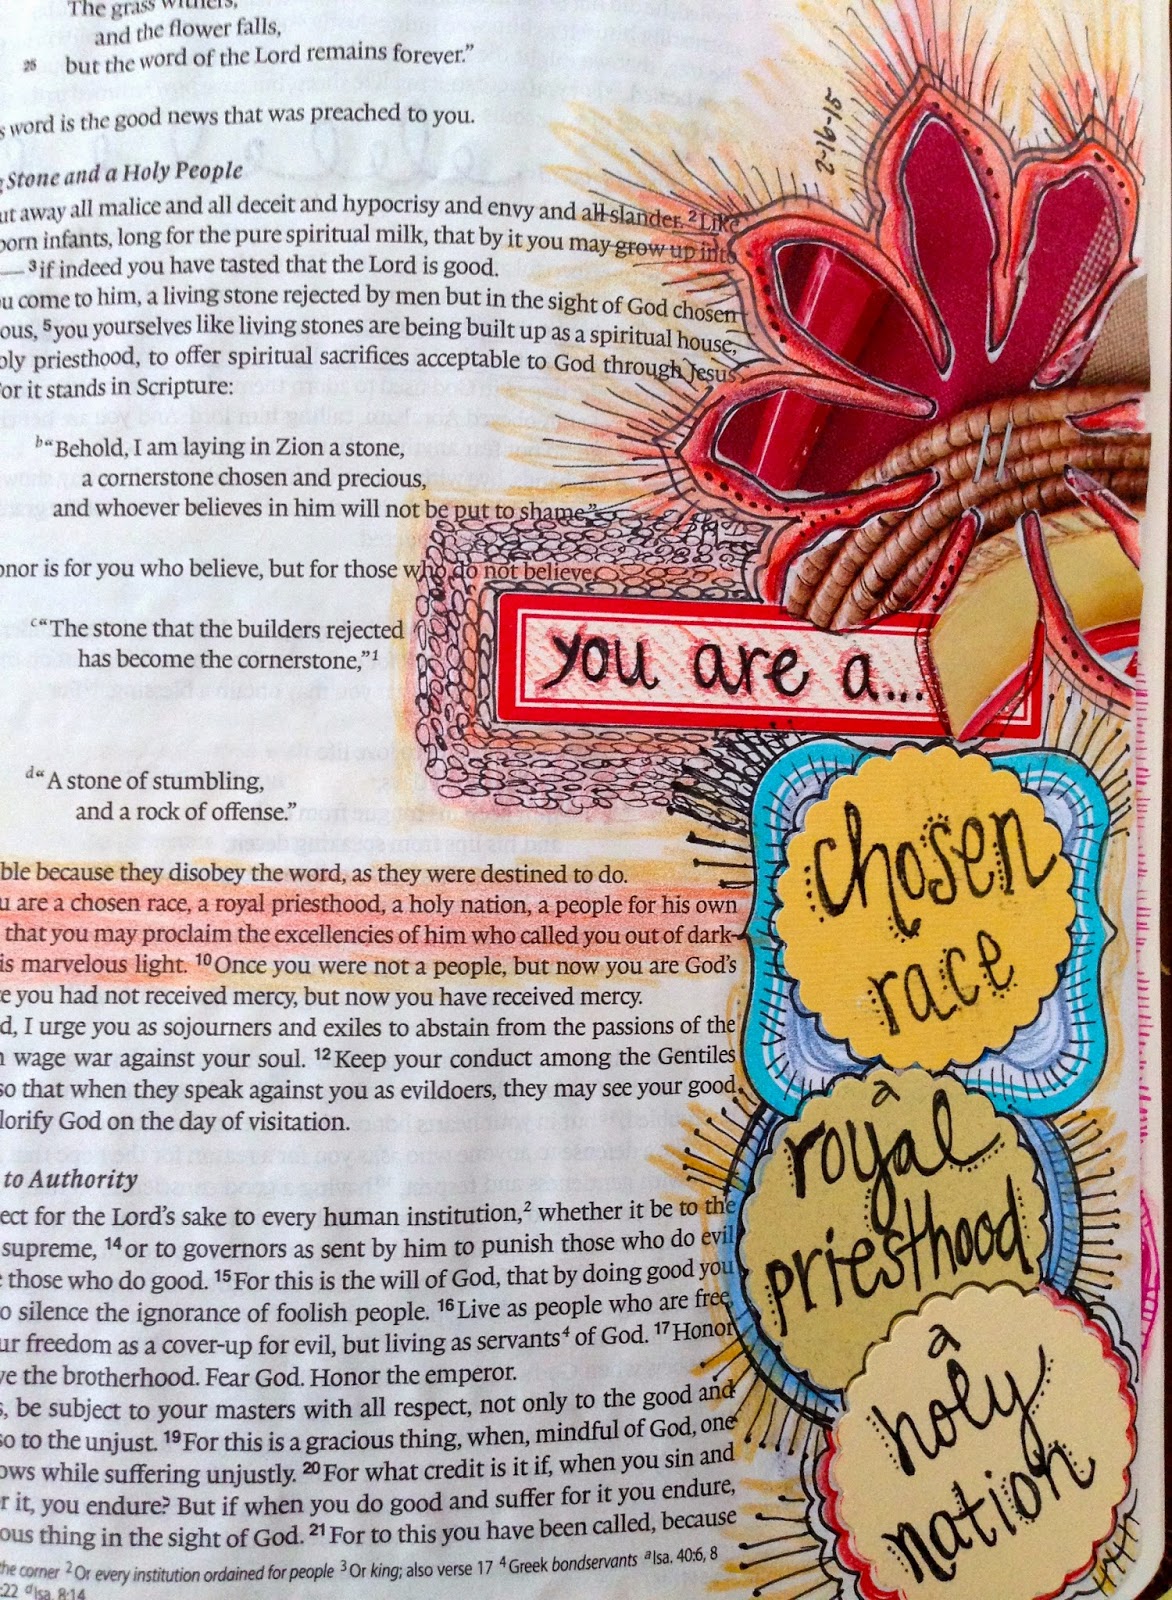 The grass withers,
and the flower falls,
25 but the word of the Lord remains forever.”
word is the good news that was preached to you.
Stone and a Holy People
away all malice and all deceit and hypocrisy and envy and all slander. 2 Like
infants, long for the pure spiritual milk, that by it you may grow up into
— 3 if indeed you have tasted that the Lord is good.
come to him, a living stone rejected by men but in the sight of God chosen
5 you yourselves like living stones are being built up as a spiritual house,
priesthood, to offer spiritual sacrifices acceptable to God through Jesus
or it stands in Scripture:
b “Behold, I am laying in Zion a stone,
a cornerstone chosen and precious,
and whoever believes in him will not be put to shame.”
is for you who believe, but for those who do not believe,
c “The stone that the builders rejected
has become the cornerstone,” 1
d “A stone of stumbling,
and a rock of offense.”
because they disobey the word, as they were destined to do.
are a chosen race, a royal priesthood, a holy nation, a people for his own
that you may proclaim the excellencies of him who called you out of dark-
marvelous light. 10 Once you were not a people, but now you are God’s
you had not received mercy, but now you have received mercy.
I urge you as sojourners and exiles to abstain from the passions of the
wage war against your soul. 12 Keep your conduct among the Gentiles
so that when they speak against you as evildoers, they may see your good
glorify God on the day of visitation.
to Authority
for the Lord’s sake to every human institution, 2 whether it be to the
supreme, 14 or to governors as sent by him to punish those who do evil
those who do good. 15 For this is the will of God, that by doing good you
silence the ignorance of foolish people. 16 Live as people who are free,
freedom as a cover-up for evil, but living as servants 4 of God. 17 Honor
the brotherhood. Fear God. Honor the emperor.
be subject to your masters with all respect, not only to the good and
so to the unjust. 19 For this is a gracious thing, when, mindful of God, one
while suffering unjustly. 20 For what credit is it if, when you sin and
it, you endure? But if when you do good and suffer for it you endure,
thing in the sight of God. 21 For to this you have been called, because
the corner 2 Or every institution ordained for people 3 Or king; also verse 17 4 Greek bondservants a Isa. 40:6, 8
:22 d Isa. 8:14
2-16-15
you are a...
chosen
race
a
royal
priesthood
a
holy
nation